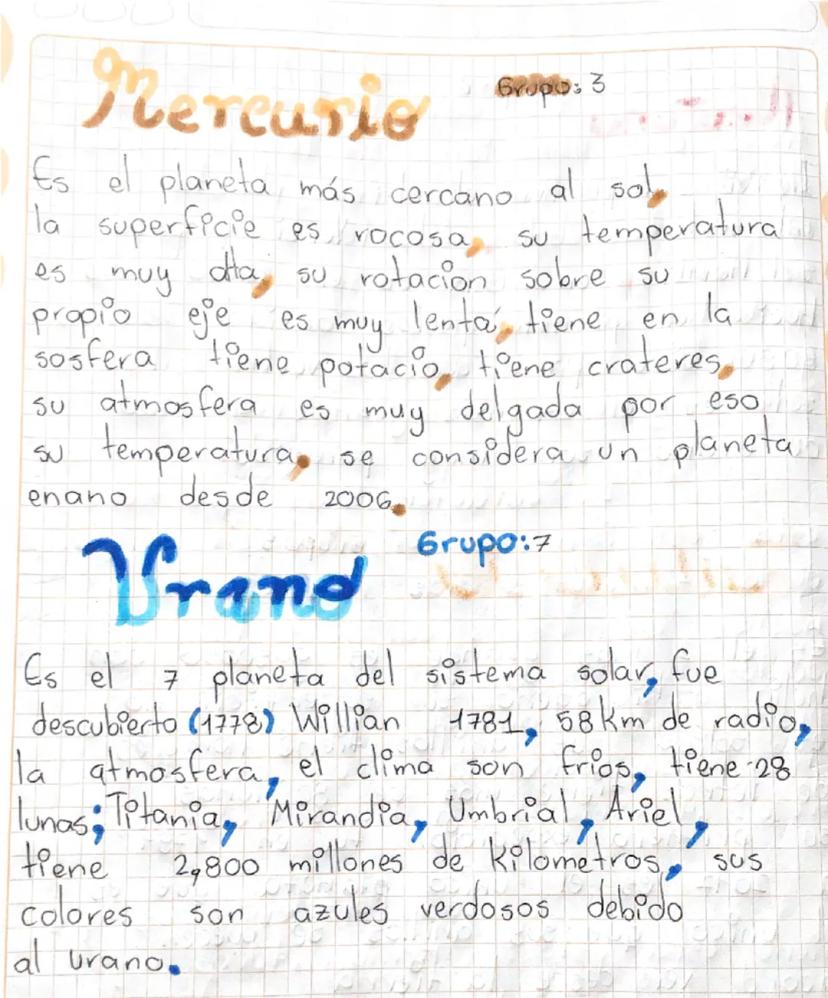 Mercurio Grupo: 3
Es el planeta más cercano al sol,
la superficie es rocosa, su temperatura
es muy alta, su rotacion sobre su
propio eje es muy lenta, tiene en la
sosfera tiene potacio, tiene crateres,
su atmosfera es muy delgada por eso
su temperatura, se considera un planeta
enano desde 2006.
Urano Grupo:7
Es el 7 planeta del sistema solar, fue
descubierto (1778) Willian 1781, 58 km de radio,
la atmosfera, el clima son frios, tiene 28
lunas; Titania, Mirandia, Umbrial, Ariel,
tiene 2,800 millones de Kilometros, sus
colores son azules verdosos debido
al urano.